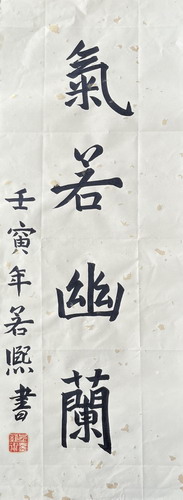 氣若幽蘭
壬寅年若熙書